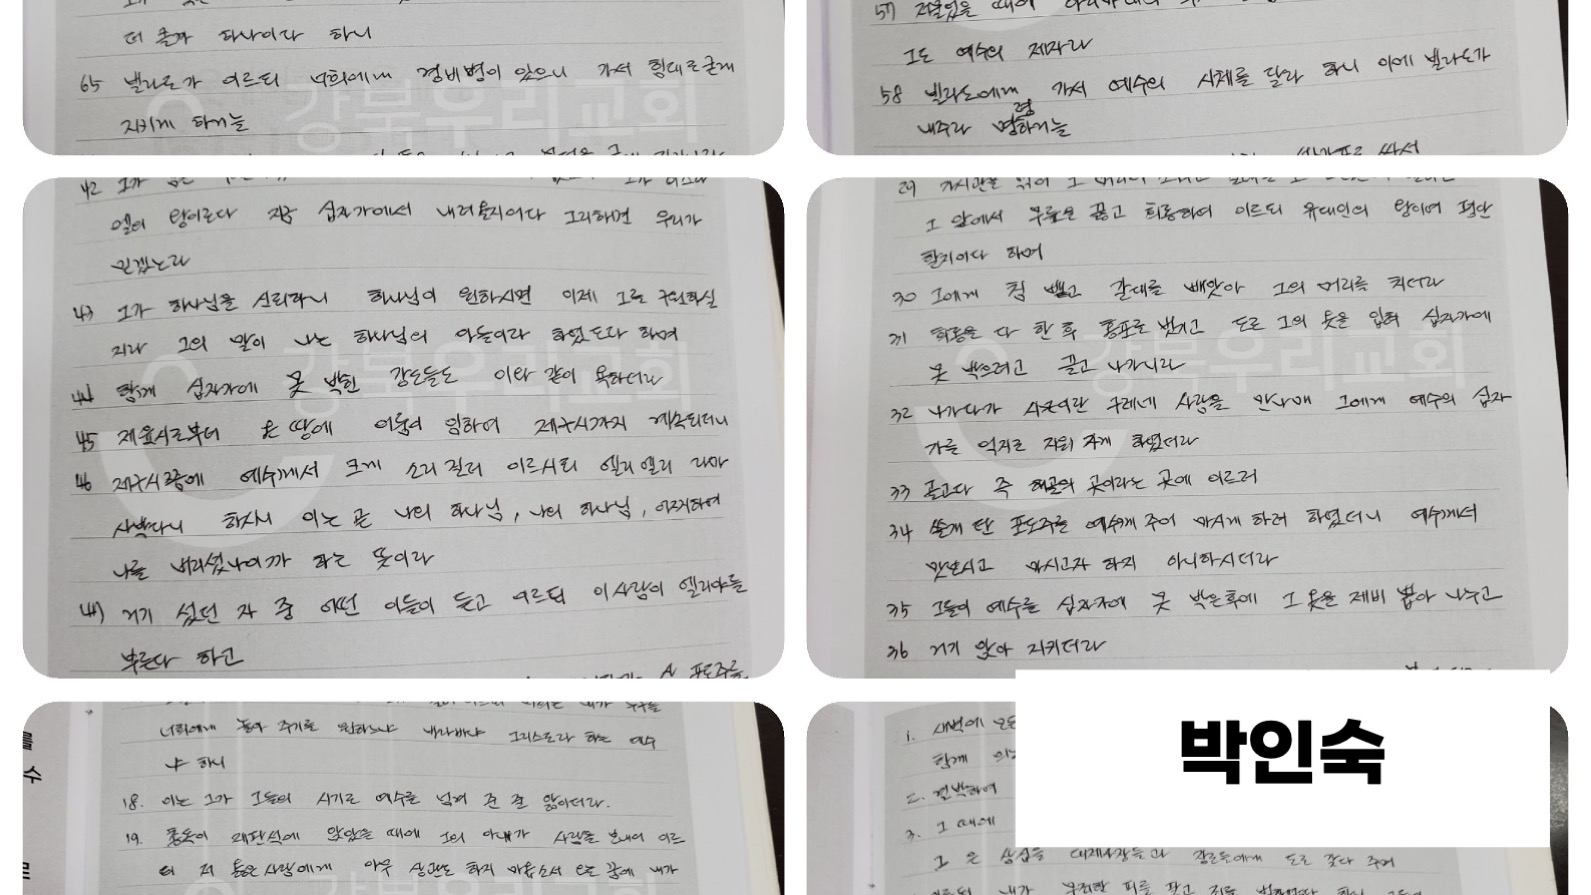 더 클까 하나이다 하니
65 빌라도가 이르되 너희에게 경비병이 있으니 가서 힘대로 굳게
지키게 하거늘
57 저물었을 때에
그도 예수의 제자라
58 빌라도에게 가서 예수의 시체를 달라 하니 이에 빌라도가
내주라 명령하거늘
세마포로 싸서
42
엘의 왕이로다 지금 십자가에서 내려올지어다 그리하면 우리가
믿겠노라
43 그가 하나님을 신뢰하니 하나님이 원하시면 이제 그를 구원하실
지라 그의 말이 나는 하나님의 아들이라 하였도다 하며
44 함께 십자가에 못 박힌 강도들도 이와 같이 욕하더라
45 제육시로부터 온 땅에 어둠이 임하여 제구시까지 계속되더니
46 제구시쯤에 예수께서 크게 소리 질러 이르시되 엘리 엘리 라마
사박다니 하시니 이는 곧 나의 하나님, 나의 하나님, 어찌하여
나를 버리셨나이까 하는 뜻이라
47 거기 섰던 자 중 어떤 이들이 듣고 이르되 이 사람이 엘리야를
부른다 하고
포도주를
29 가시관을 엮어 그
그 앞에서 무릎을 꿇고 희롱하여 이르되 유대인의 왕이여 평안
할지어다 하며
30 그에게 침 뱉고 갈대를 빼앗아 그의 머리를 치더라
31 희롱을 다 한 후 홍포를 벗기고 도로 그의 옷을 입혀 십자가에
못 박으려고 끌고 나가니라
32 나가다가 시몬이란 구레네 사람을 만나매 그에게 예수의 십자
가를 억지로 지워 가게 하였더라
33 골고다 즉 해골의 곳이라는 곳에 이르러
34 쓸개 탄 포도주를 예수께 주어 마시게 하려 하였더니 예수께서
맛보시고 마시고자 하지 아니하시더라
35 그들이 예수를 십자가에 못 박은 후에 그 옷을 제비 뽑아 나누고
36 거기 앉아 지키더라
너희에게 놓아 주기를 원하느냐 바라바냐 그리스도라 하는 예수
냐 하니
18. 이는 그가 그들의 시기로 예수를 넘겨 준 줄 앎이더라.
19. 총독이 재판석에 앉았을 때에 그의 아내가 사람을 보내어 이르
되 저 옳은 사람에게 아무 상관도 하지 마옵소서 오늘 꿈에 내가
1. 새벽에 모든
함께 의논
2. 결박하여
3. 그 때에
그 은 삼십을 대제사장들과 장로들에게 도로 갖다 주며
내가 무죄한 피를 팔고
박인숙
강북우리교회
강북우리교회
강북우리교회